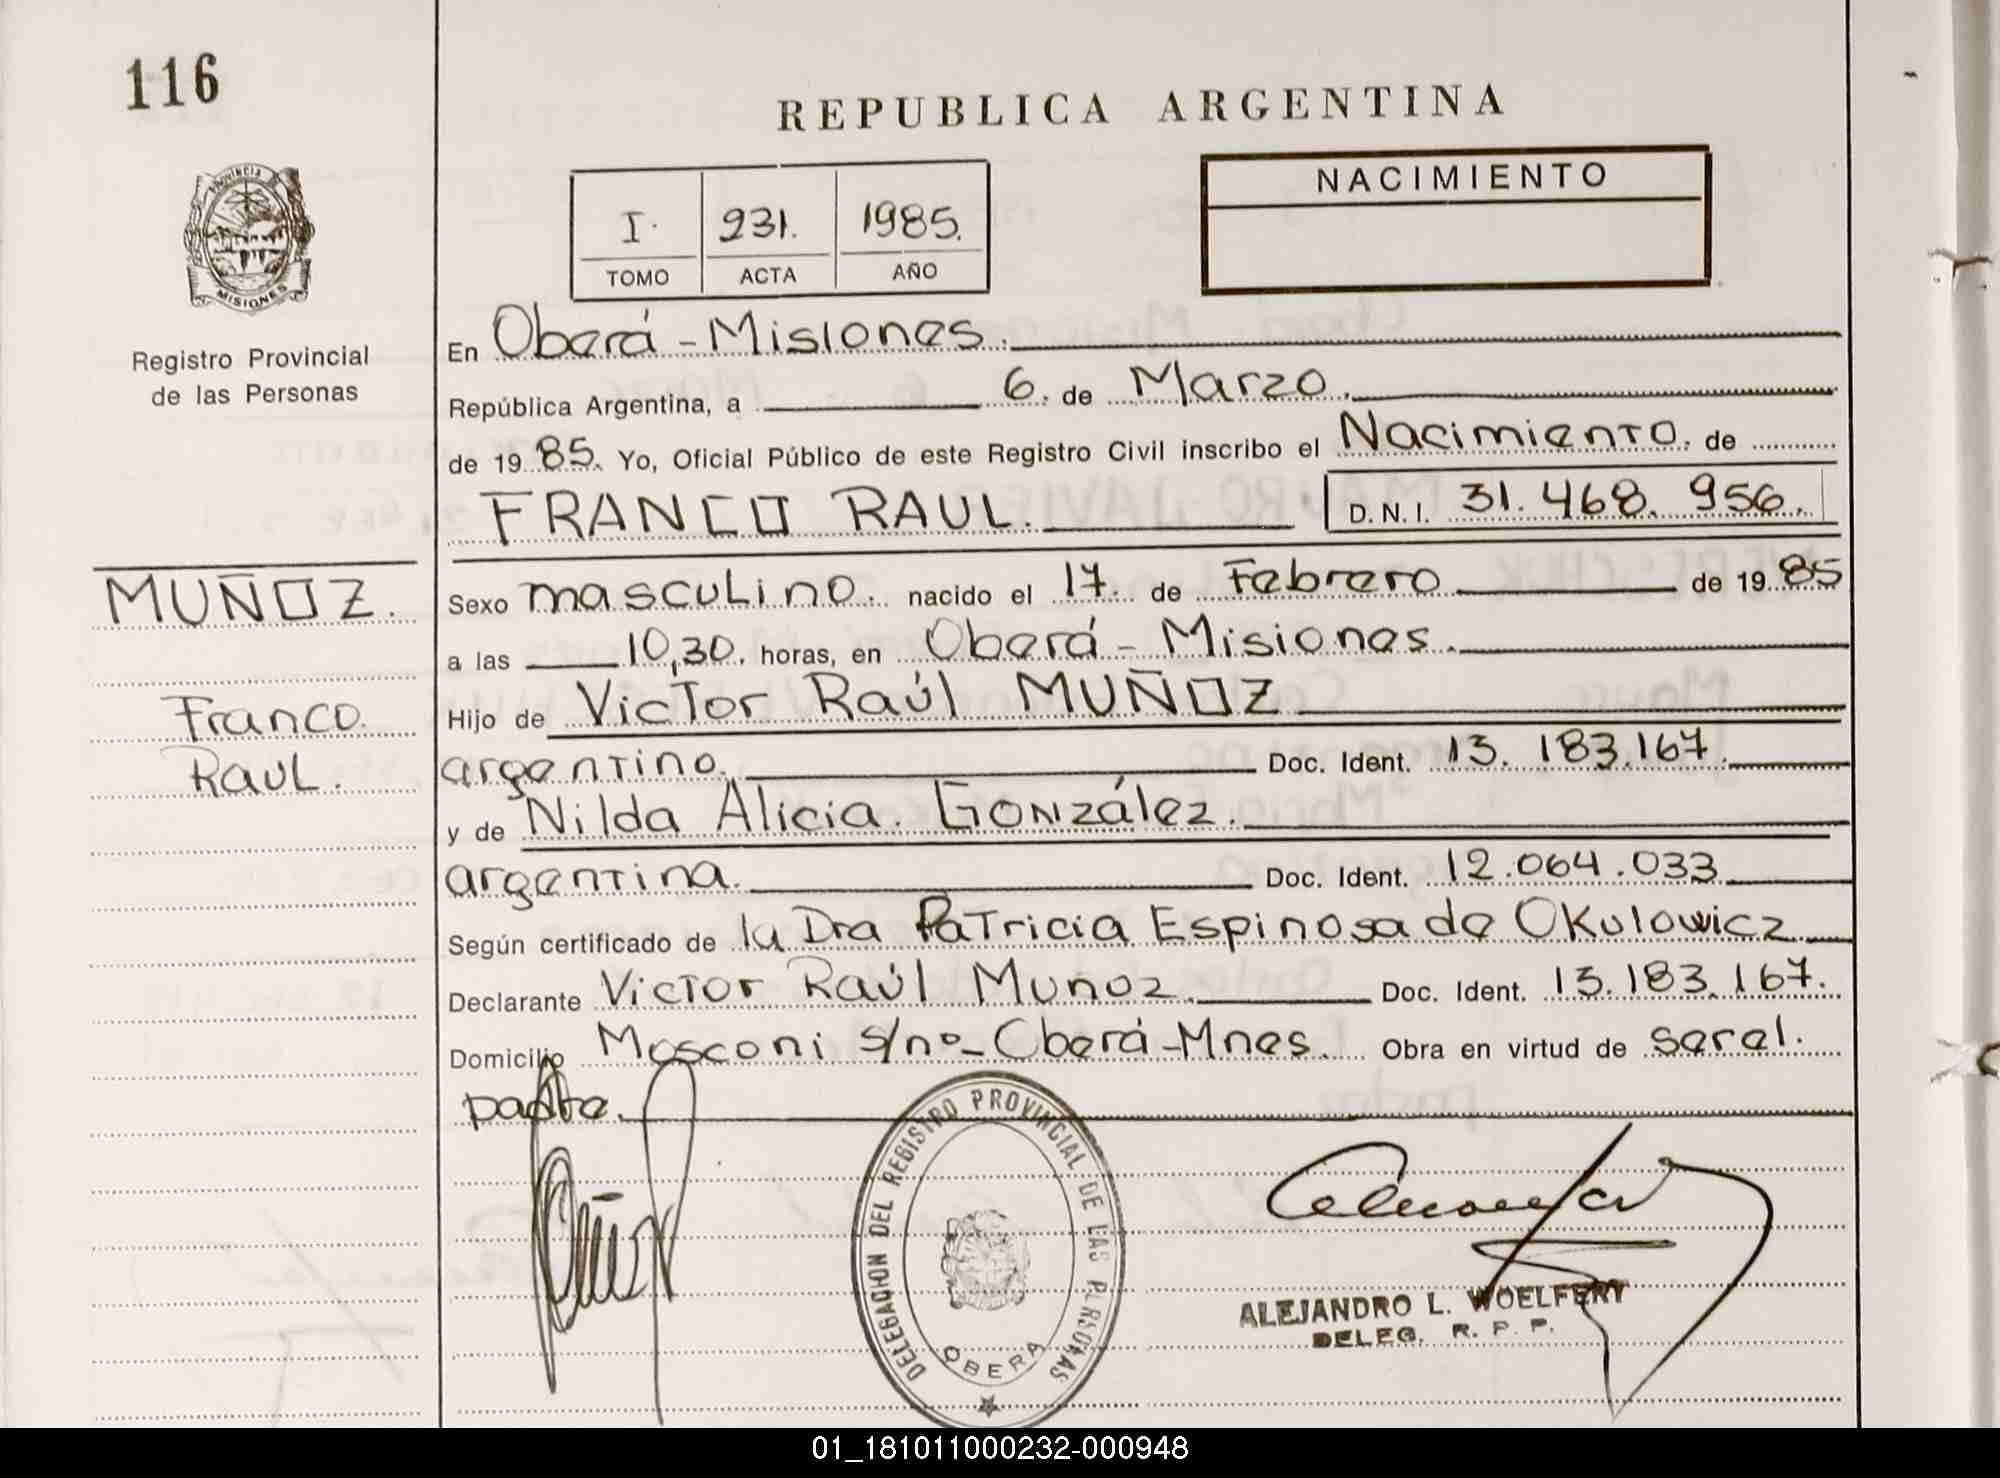 116
REPUBLICA ARGENTINA
PROVINCIA
MISIONES
Registro Provincial
de las Personas
I. 231. 1985.
TOMO ACTA AÑO
NACIMIENTO
En Oberá - Misiones.
República Argentina, a 6. de Marzo.
de 19 85. Yo, Oficial Público de este Registro Civil inscribo el Nacimiento. de
FRANCO RAUL. D.N.I. 31.468.956.
MUÑOZ.
Franco.
Raul.
Sexo masculino. nacido el 17. de Febrero de 19 85
a las 10,30. horas, en Oberá - Misiones.
Hijo de Victor Raúl MUÑOZ
argentino. Doc. Ident. 13.183.167.
y de Nilda Alicia. González.
argentina. Doc. Ident. 12.064.033
Según certificado de la Dra Patricia Espinosa de Okulowicz
Declarante Victor Raúl Muñoz. Doc. Ident. 13.183.167.
Domicilio Mosconi s/nº - Oberá - Mnes. Obra en virtud de ser el.
padre.
DELEGACION DEL REGISTRO PROVINCIAL DE LAS PERSONAS
OBERA
ALEJANDRO L. WOELFERT
DELEG. R. P. P.
01_181011000232-000948